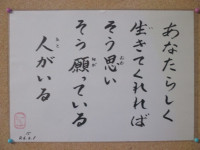 あなたらしく
生きてくれれば
そう思い
そう願っている
人がいる